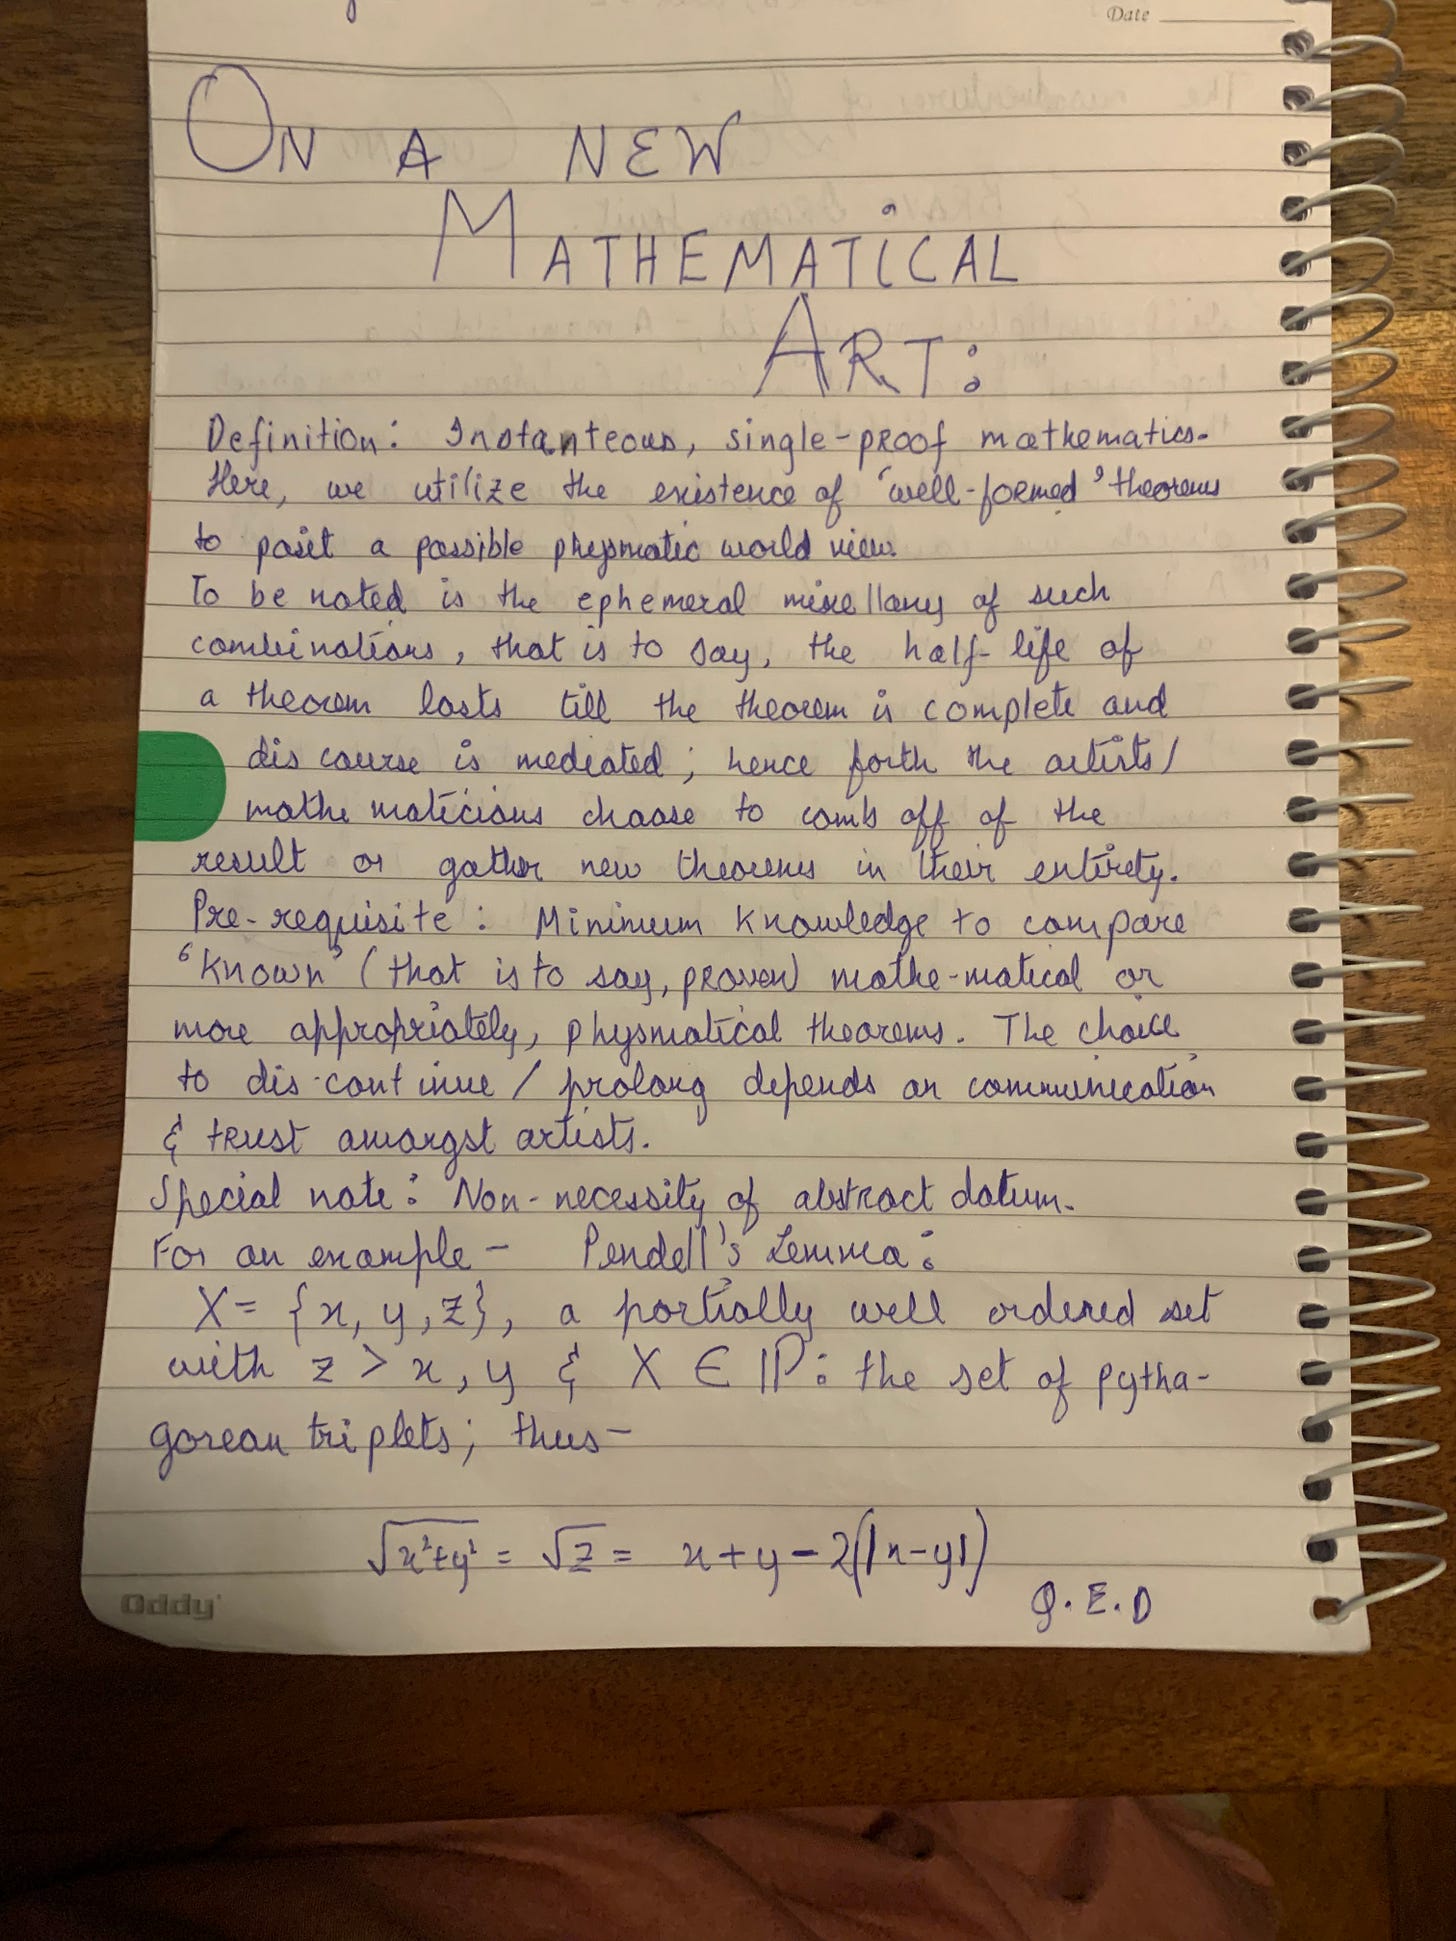 Date
ON A NEW
MATHEMATICAL
ART:
Definition: Instanteous, single-proof mathematics.
Here, we utilize the existence of 'well-formed' theorems
to posit a possible physmatic world view.
To be noted is the ephemeral miscellany of such
combinations, that is to say, the half-life of
a theorem lasts till the theorem is complete and
discourse is mediated; hence forth the artists/
mathematicians choose to comb off of the
result or gather new theorems in their entirety.
Pre-requisite: Minimum knowledge to compare
'known' (that is to say, proven) mathe-matical or
more appropriately, physmatical theorems. The choice
to dis-continue / prolong depends on communication
& trust amongst artists.
Special note: Non-necessity of abstract datum.
For an example - Pendell's Lemma:
X = {x, y, z}, a partially well ordered set
with z > x, y & X ∈ ℙ: the set of pytha-
gorean triplets; thus-
√x²+y² = √z = x+y-2(|x-y|)
Q.E.D
Oddy